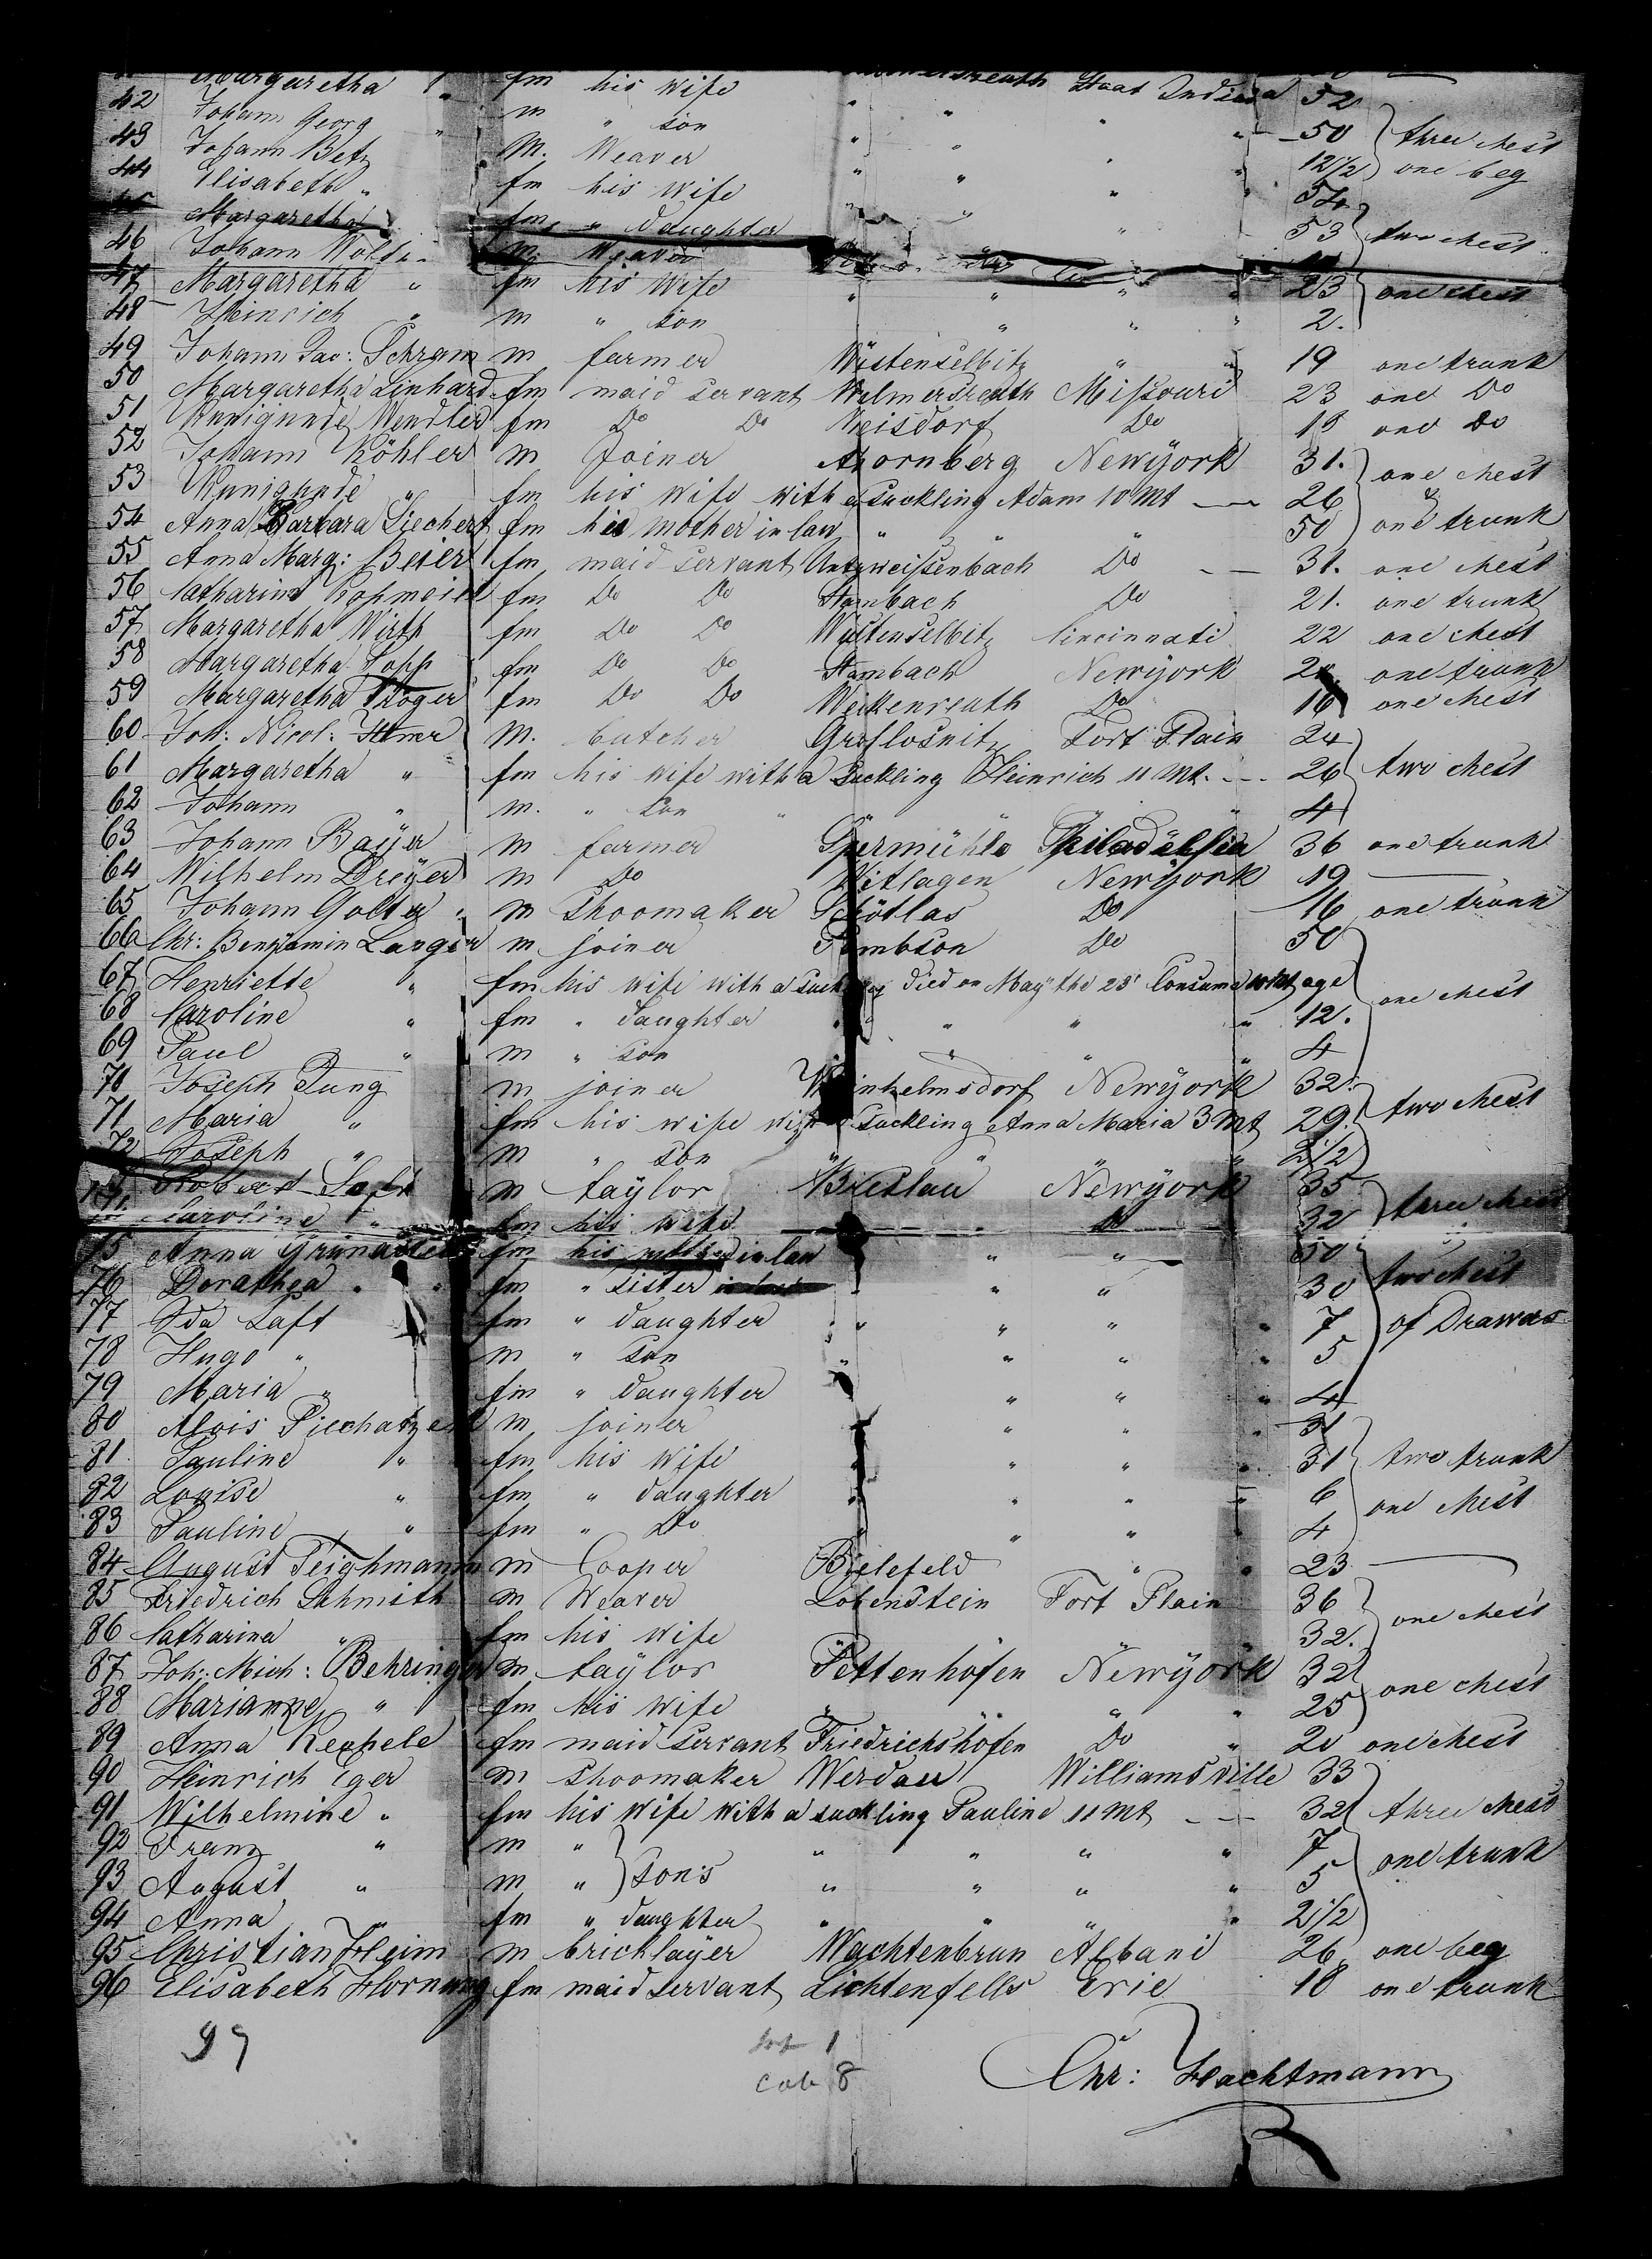 Margaretha " fm his wife Staat Indiana 52
42 Johann Georg " m " son " " " " 50 three chest
43 Johann Betz M. Weaver " " " " 12 1/2 one beg
44 Elisabeth " fm his wife " " " " 54
45 Margaretha fm " daughter " " " 53 two chest
46 Johann Wolf m Weaver
47 Margaretha " fm his wife " " " " 23 one chest
48 Heinrich " m " son " " " 2.
49 Johann Jac: Schram m farmer Wüstenselbitz " " 19 one trunk
50 Margaretha Linhard fm maid servant Wulmersreuth Missouri 23 one Do
51 Kunigunde Wendler fm Do Do Weisdorf Do 19 one Do
52 Johann Köhler m Joiner Ahornberg Newÿork 31. one chest
53 Kunigunde " fm his wife with a suckling Adam 10 Mt 26 &
54 Anna Barbara Siechert fm his mother in law " " " 50 one trunk
55 Anna Marg: Beier fm maid servant Untzweissenbach Do 31. one chest
56 Catharina fm Do Do Stambach Do 21. one trunk
57 Margaretha Wirth fm Do Do Wüstenselbitz Cincinnati 22 one chest
58 Margaretha Popp fm Do Do Stambach Newÿork one trunk
59 Margaretha Ploger fm Do Do Weikenreuth Do 16 one chest
60 Joh: Nicol: m. butcher Groslosnitz Fort Plain 24
61 Margaretha " fm his wife with a suckling Heinrich 11 Mt. 26 two chest
62 Johann " m. " son " " " 4
63 Johann Baÿer m farmer Gpermühle Philadelfia 36 one trunk
64 Wilhelm Dreÿer m Do Witlagen Newÿork 19
65 Johann Golter " m Shoomaker Schötlas Do 16 one trunk
66 Chr: Benjamin Langer m joiner Tombson Do 50
67 Henriette " fm his wife with a suckling died on Maÿ the 23 Consume 10 Mt age
68 Caroline " fm " daughter " " " " 12. one chest
69 Paul " m " son " " " 4
70 Joseph Jung m joiner Weinhelmsdorf Newÿork 32.
71 Maria " fm his wife with a suckling Anna Maria 3 Mt 29. two chest
72 Joseph " m " son " " " " 2 1/2
73 Robert Saft m taÿlor Breslau Newÿork 35
74 Caroline " fm his wife " Do 32 three chest
75 Anna fm his mother in law " " 50
76 Dorathea " " fm " sister in law " " " 30 two chest
77 Ida Saft fm " daughter " " " " 7 of Drawers
78 Hugo " m " son " " " " 5
79 Maria " fm " daughter " " " 4
80 Alois Piechatzek m joiner " " " 31
81 Pauline " fm his wife " " " " 31 two trunk
82 Louise " fm " daughter " " " " 6
83 Pauline " fm " Do " " " 4 one chest
84 August Teighmann m Cooper Bielefeld " " 23
85 Friedrich Schmith m Weaver Lobenstein Fort Plain 36
86 Catharina " fm his wife 32. one chest
87 Joh: Mich: Behringer m taÿlor Pettenhöfen Newÿork 32
88 Marianne " fm his wife " " " 25 one chest
89 Anna Kechele fm maid servant Friedrichshöfen Do " 20 one chest
90 Heinrich Eger m shoomaker Werdau Williamsville 33
91 Wilhelmine " fm his wife with a suckling Pauline 11 Mt 32 three chest
92 Franz " m " " " " " 7
93 August " m " sons " " " " 5 one trunk
94 Anna " fm " daughter " " " " 2 1/2
95 Christian Heim m bricklaÿer Wachtenbrun Albani 26 one beg
96 Elisabeth Hornung fm maid servant Lichtenfells Erie 18 one trunk
97
1
cab 8
Chr: Hachtmann